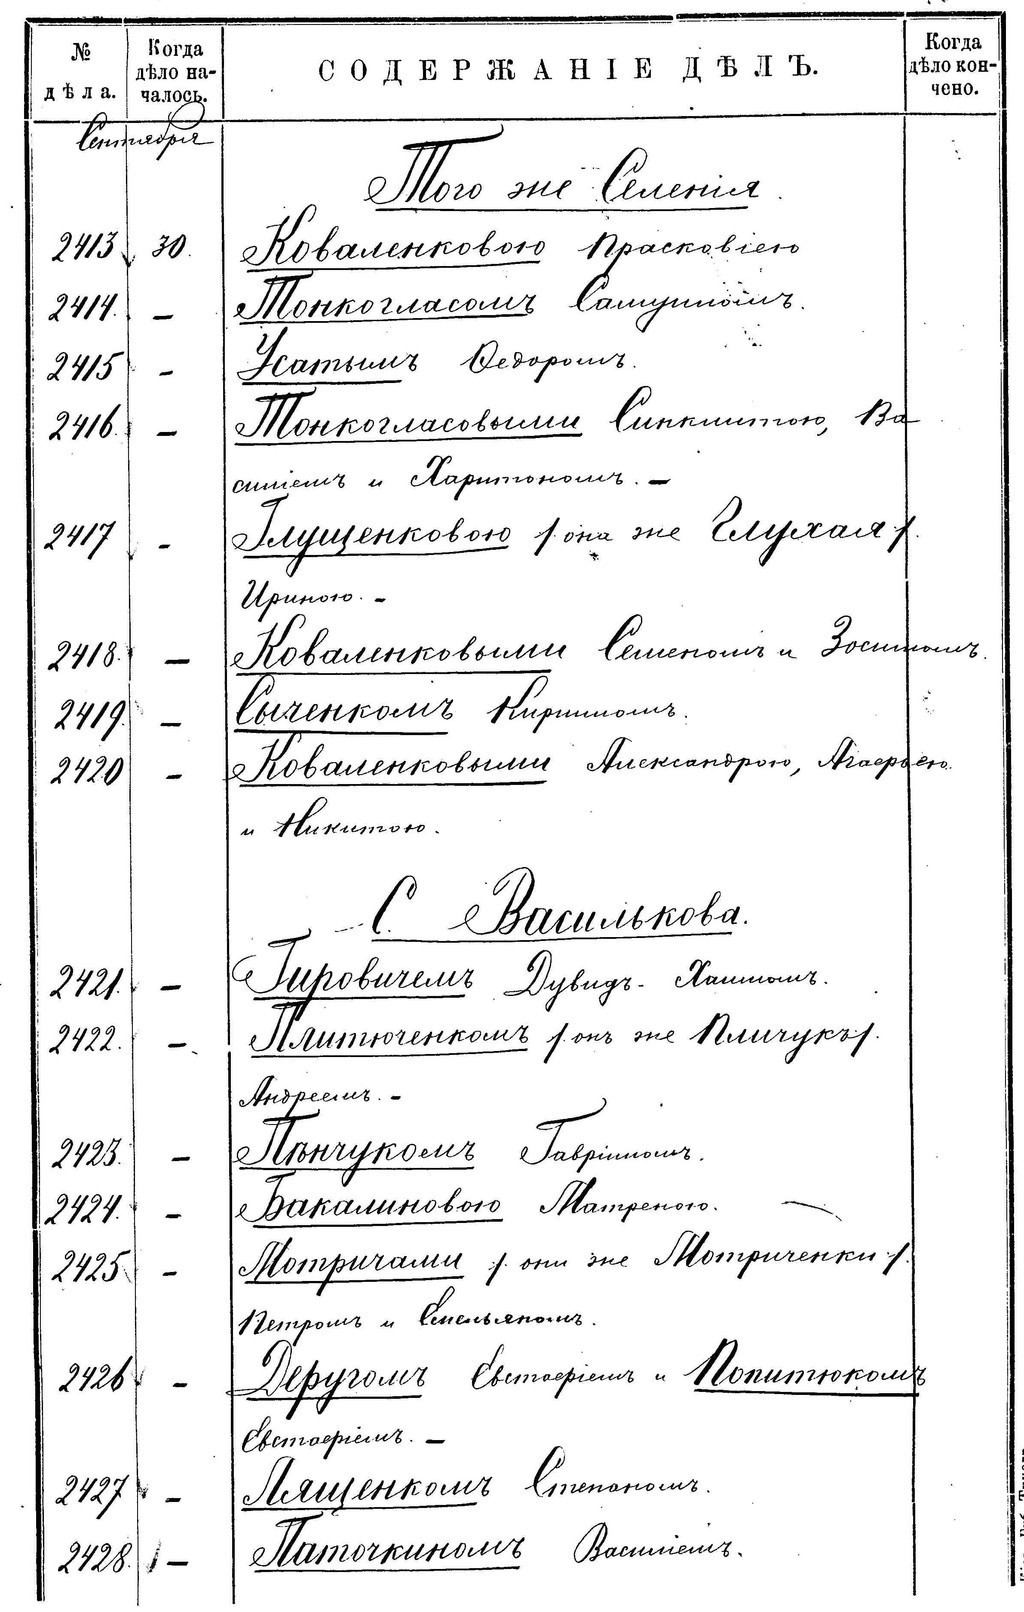 № дѣла.
Когда дѣло началось.
СОДЕРЖАНІЕ ДѢЛЪ.
Когда дѣло кончено.
Сентября
Того же Селенія.
2413 30. Коваленковою Прасковіею
2414. — Тонкогласомъ Самуиломъ.
2415 — Усатымъ Ѳедоромъ.
2416. — Тонкогласовыми Синклитою, Ва
силіемъ и Харитономъ. —
2417 — Глущенковою /. она же Глухая /.
Ириною. —
2418. — Коваленковыми Семеномъ и Зосимомъ.
2419. — Сыченкомъ Кириломъ.
2420 — Коваленковыми Александрою, Агафьею
и Никитою.
С. Василькова.
2421. — Гировичемъ Дувидъ-Хаимомъ.
2422. — Плитюченкомъ /. онъ же Пличукъ /.
Андреемъ. —
2423. — Пѣнчукомъ Гавріиломъ.
2424. — Бакалиновою Матреною. —
2425 — Мотричами /. они же Мотриченки /.
Петромъ и Емельяномъ.
2426 — Деругомъ Евстафіемъ и Попитюкомъ
Евстафіемъ. —
2427 — Лященкомъ Степаномъ.
2428. — Латочкиномъ Василіемъ.